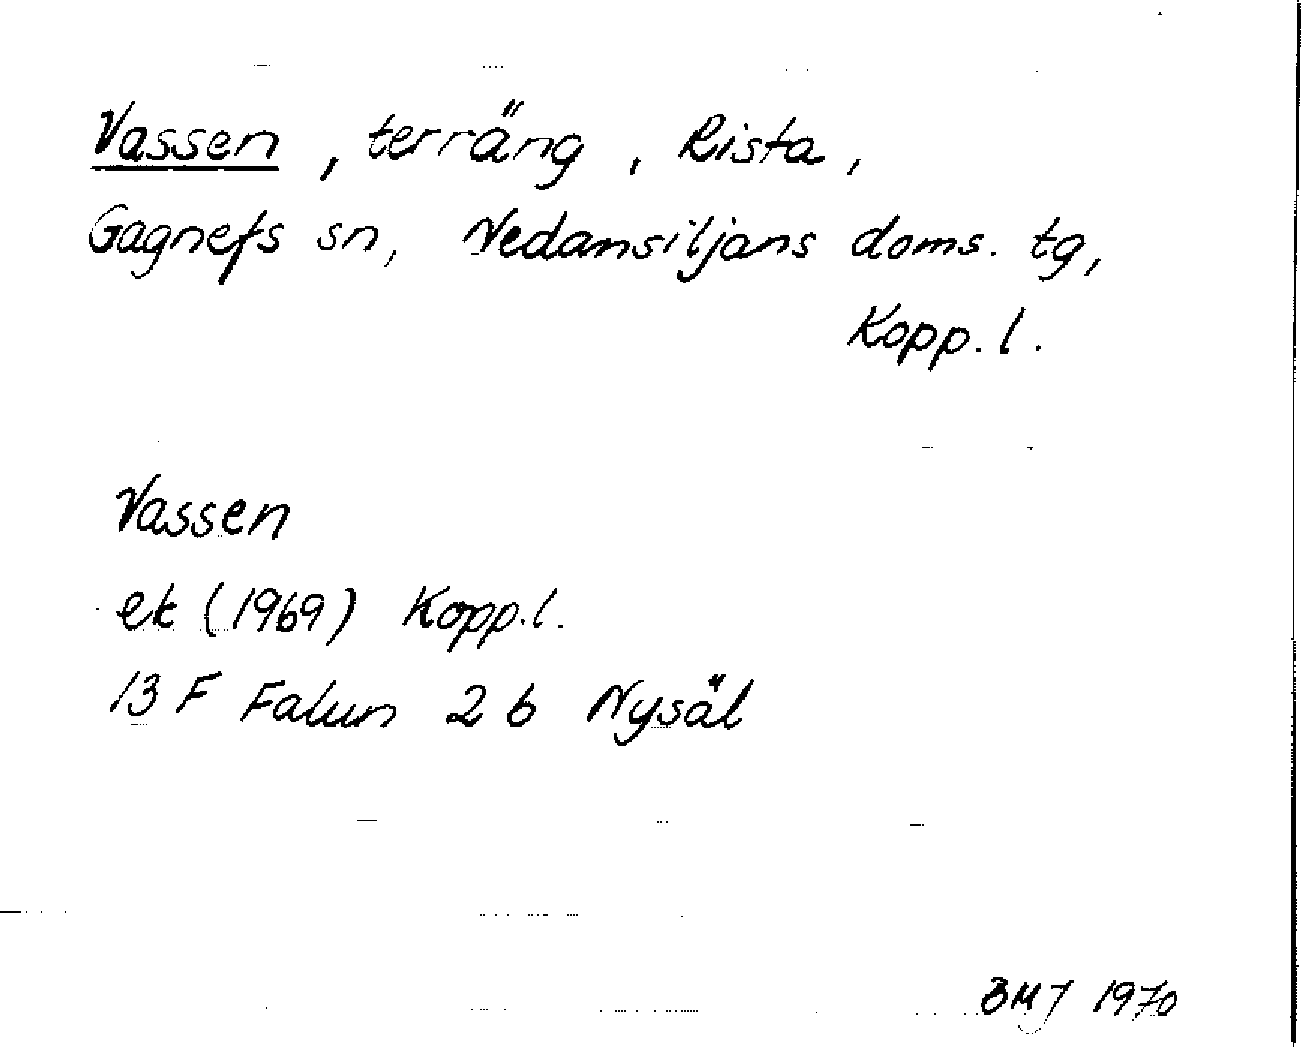 Vassen, terräng, Rista,
Gagnefs sn, Nedansiljans doms. tg,
Kopp. l.
Vassen
ek (1969) Kopp.l.
13 F Falun 2 b Nysäl
BMJ 1970